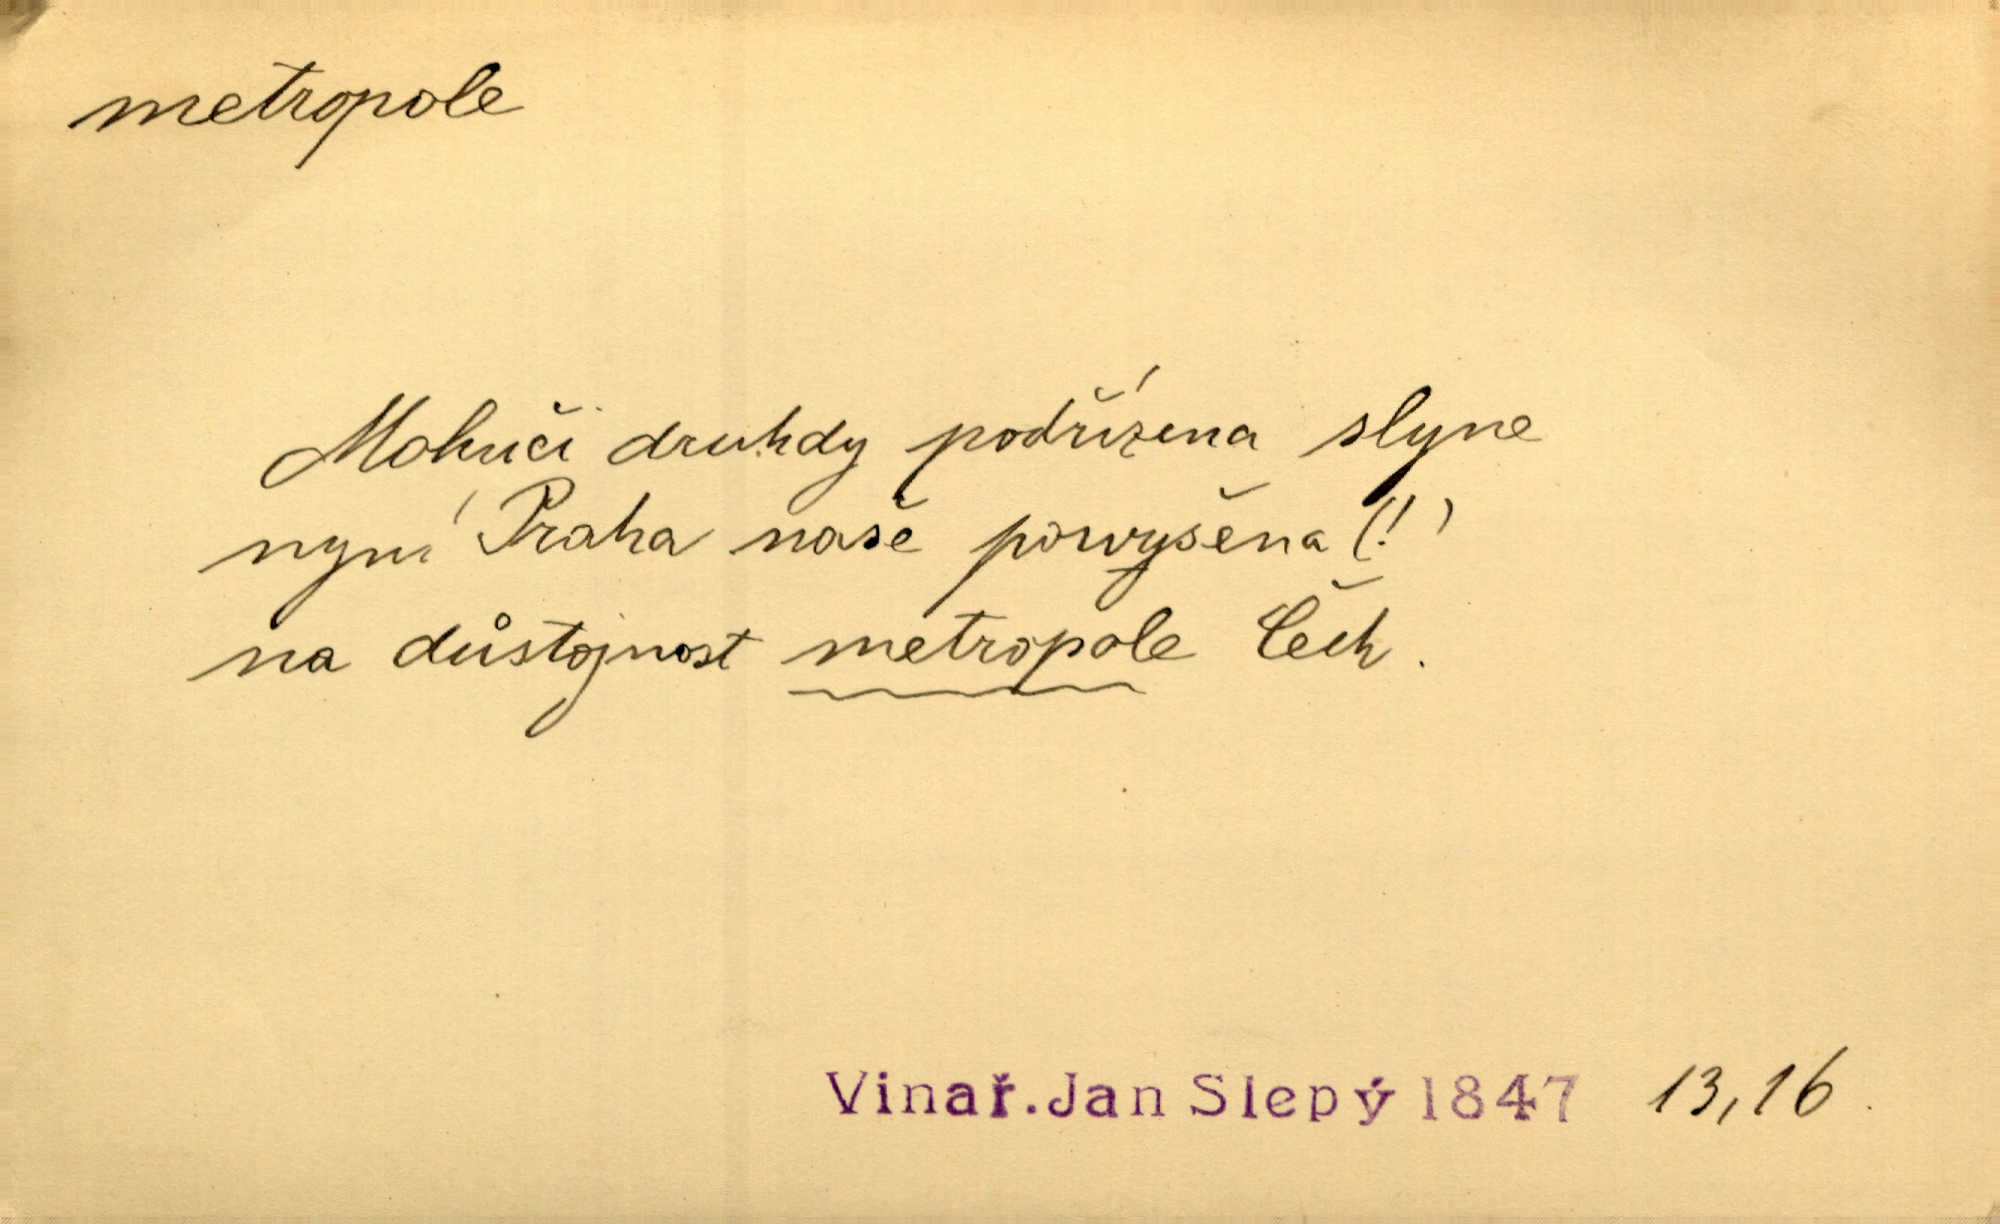 metropole
Mohuči druhdy podřízena slyne
nyní Praha naše powyšěna (!)
na důstojnost metropole Čech.
Vinař. Jan Slepý 1847 13,16.